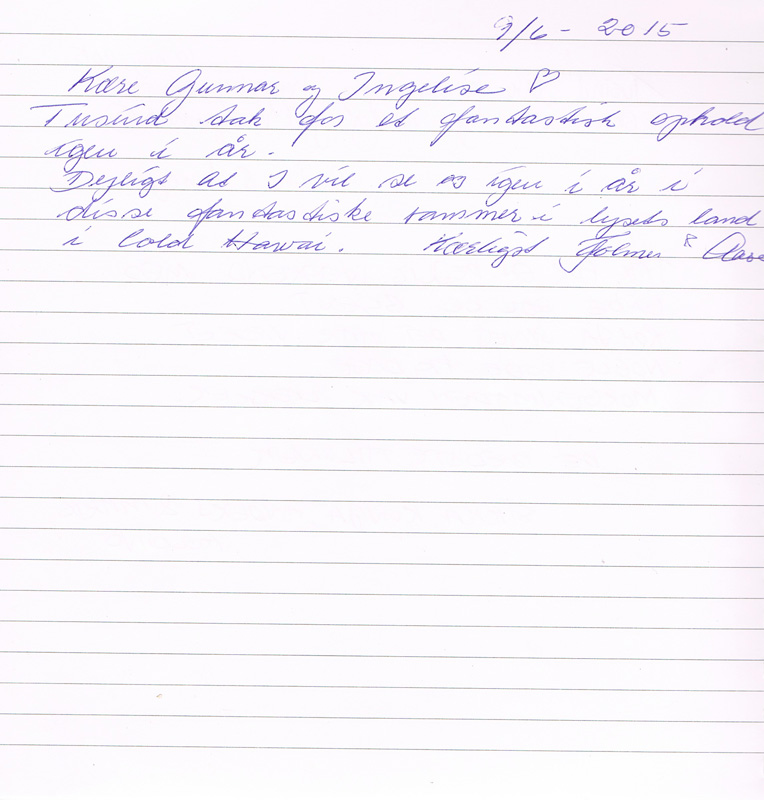 9/6 - 2015
Kære Gunnar og Ingelise ♡
Tusind tak for et fantastisk ophold
igen i år.
Dejligt at I vil se os igen i år i
disse fantastiske rammer i lysets land
i Cold Hawai. Kærligst Holmer & Aase